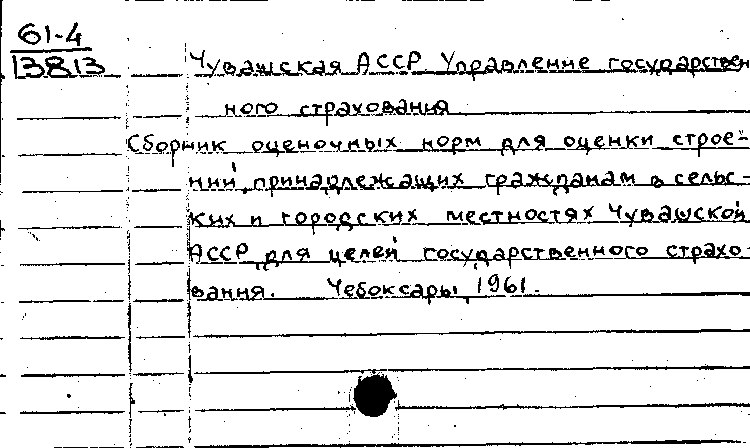 61-4
13813
Чувашская АССР Управление государствен
ного страхования
Сборник оценочных норм для оценки строе-
ний, принадлежащих гражданам в сельс-
ких и городских местностях Чувашской
АССР, для целей государственного страхо-
вания. Чебоксары, 1961.